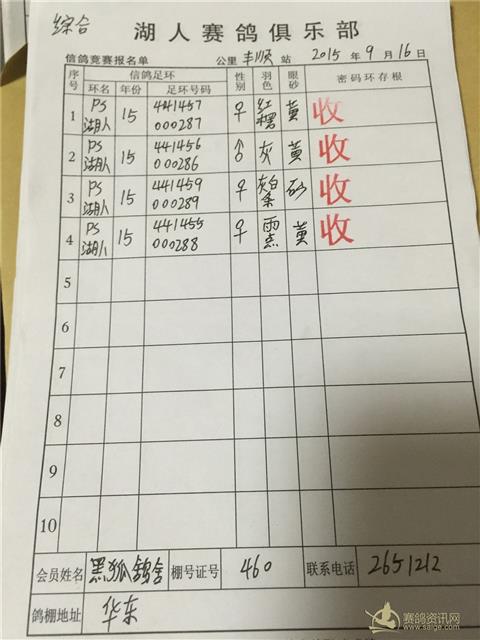 综合
湖人赛鸽俱乐部
信鸽竞赛报名单 公里 丰顺 站 2015 年 9 月 16 日
序号 信鸽足环 性别 羽色 眼砂 密码环存根
环名 年份 足环号码
1 PS 湖人 15 441457 000287 ♀ 红楞 黄 收
2 PS 湖人 15 441456 000286 ♂ 灰 黄 收
3 PS 湖人 15 441459 000289 ♀ 灰白条 砂 收
4 PS 湖人 15 441455 000288 ♀ 雨点 黄 收
5
6
7
8
9
10
会员姓名 黑狐鸽舍 棚号证号 460 联系电话 2651212
鸽棚地址 华东
赛鸽资讯网
www.saige.com